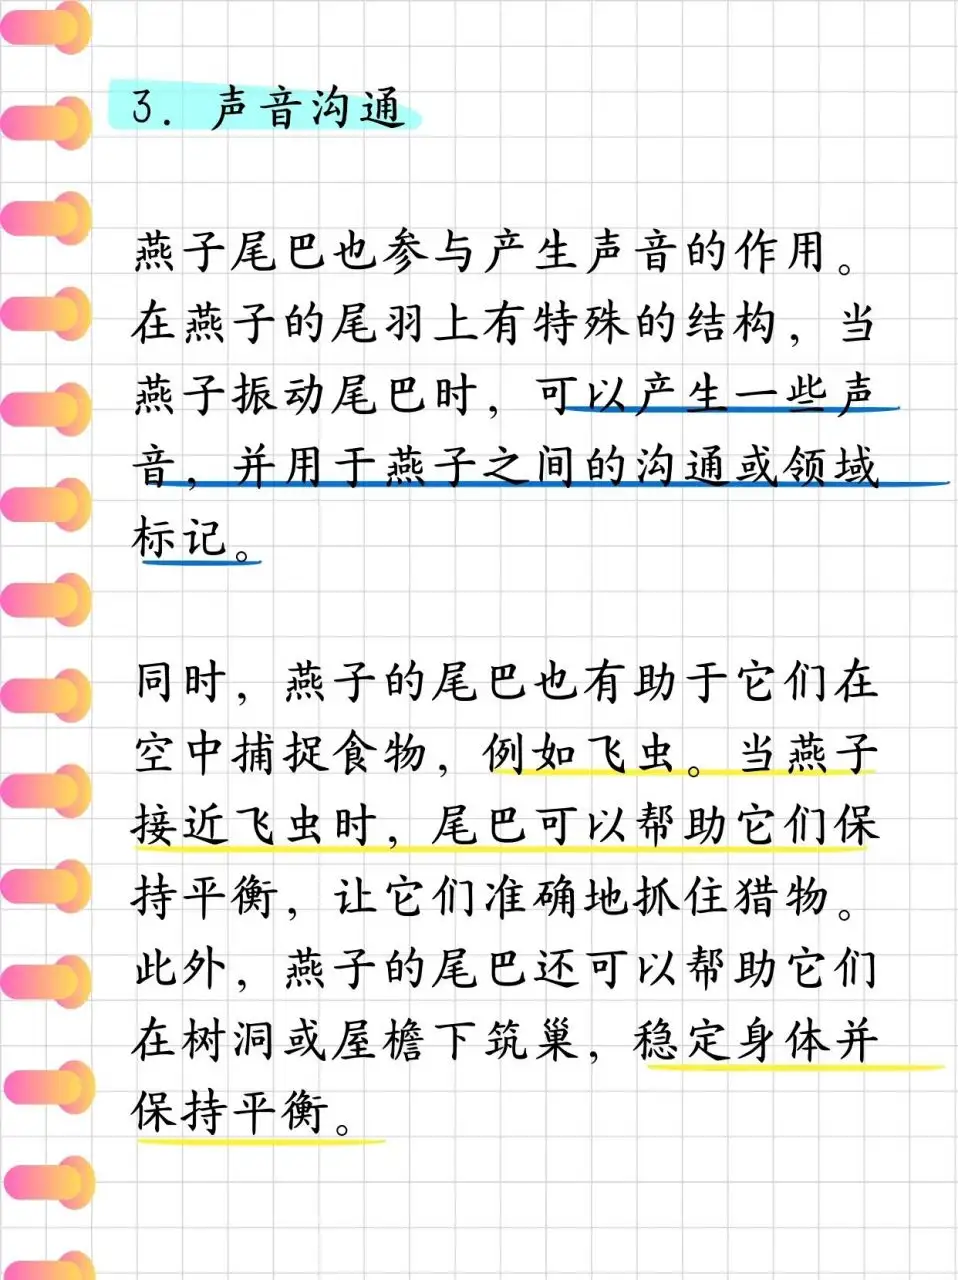 3. 声音沟通
燕子尾巴也参与产生声音的作用。
在燕子的尾羽上有特殊的结构，当
燕子振动尾巴时，可以产生一些声
音，并用于燕子之间的沟通或领域
标记。
同时，燕子的尾巴也有助于它们在
空中捕捉食物，例如飞虫。当燕子
接近飞虫时，尾巴可以帮助它们保
持平衡，让它们准确地抓住猎物。
此外，燕子的尾巴还可以帮助它们
在树洞或屋檐下筑巢，稳定身体并
保持平衡。